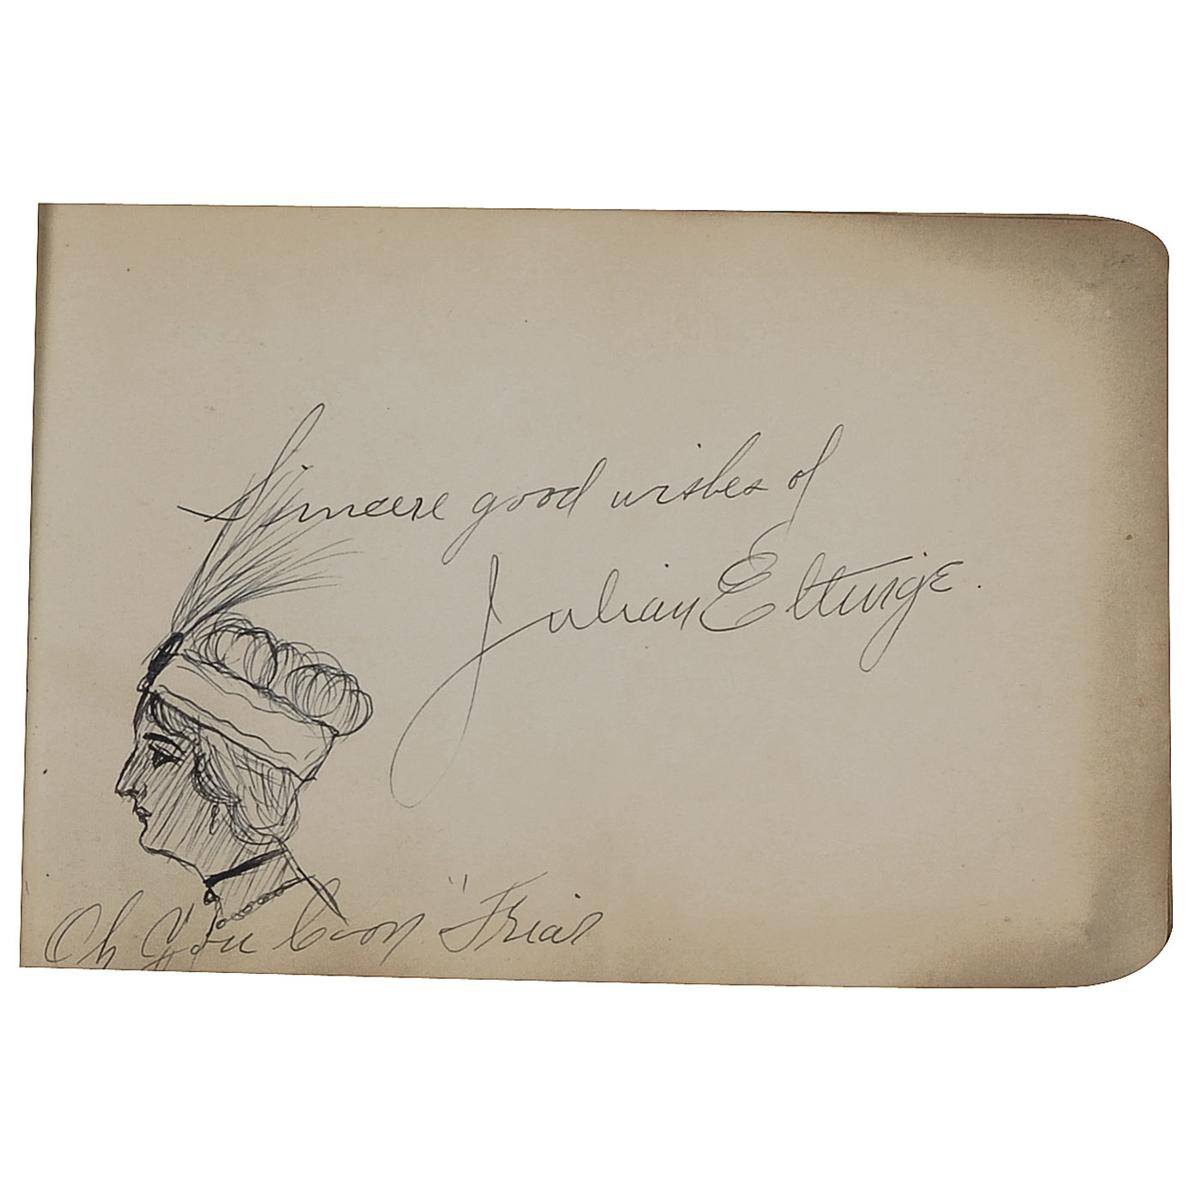 Sincere good wishes of
Julian Eltinge.
Oh You "Friar